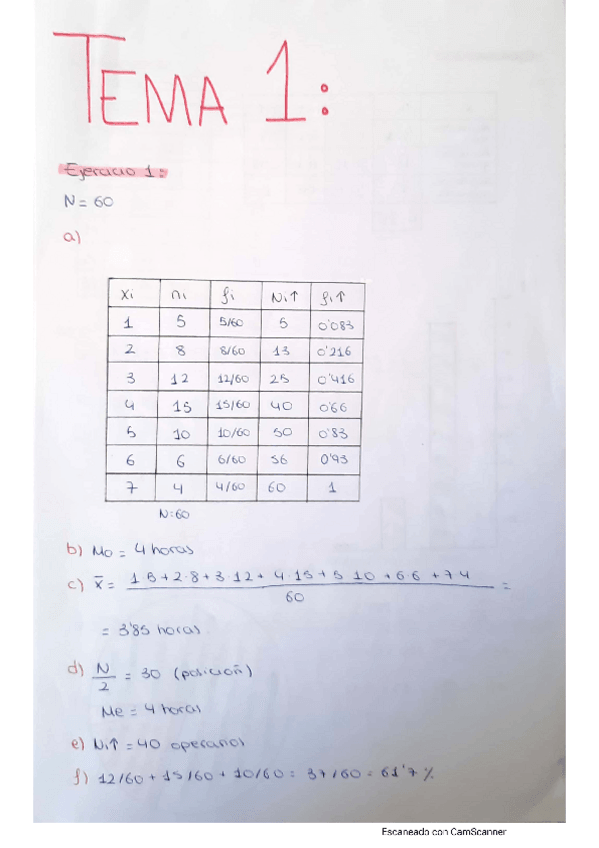 TEMA 1:
Ejercicio 1:
N = 60
a)
xi ni fi Ni↑ fi↑
1 5 5/60 5 0'083
2 8 8/60 13 0'216
3 12 12/60 25 0'416
4 15 15/60 40 0'66
5 10 10/60 50 0'83
6 6 6/60 56 0'93
7 4 4/60 60 1
N=60
b) Mo = 4 horas
c) x̄ = 1·5+2·8+3·12+4·15+5·10+6·6+7·4 / 60 =
= 3'85 horas
d) N/2 = 30 (posición)
Me = 4 horas
e) Ni↑ = 40 operarios
f) 12/60 + 15/60 + 10/60 = 37/60 = 61'7 %
Escaneado con CamScanner